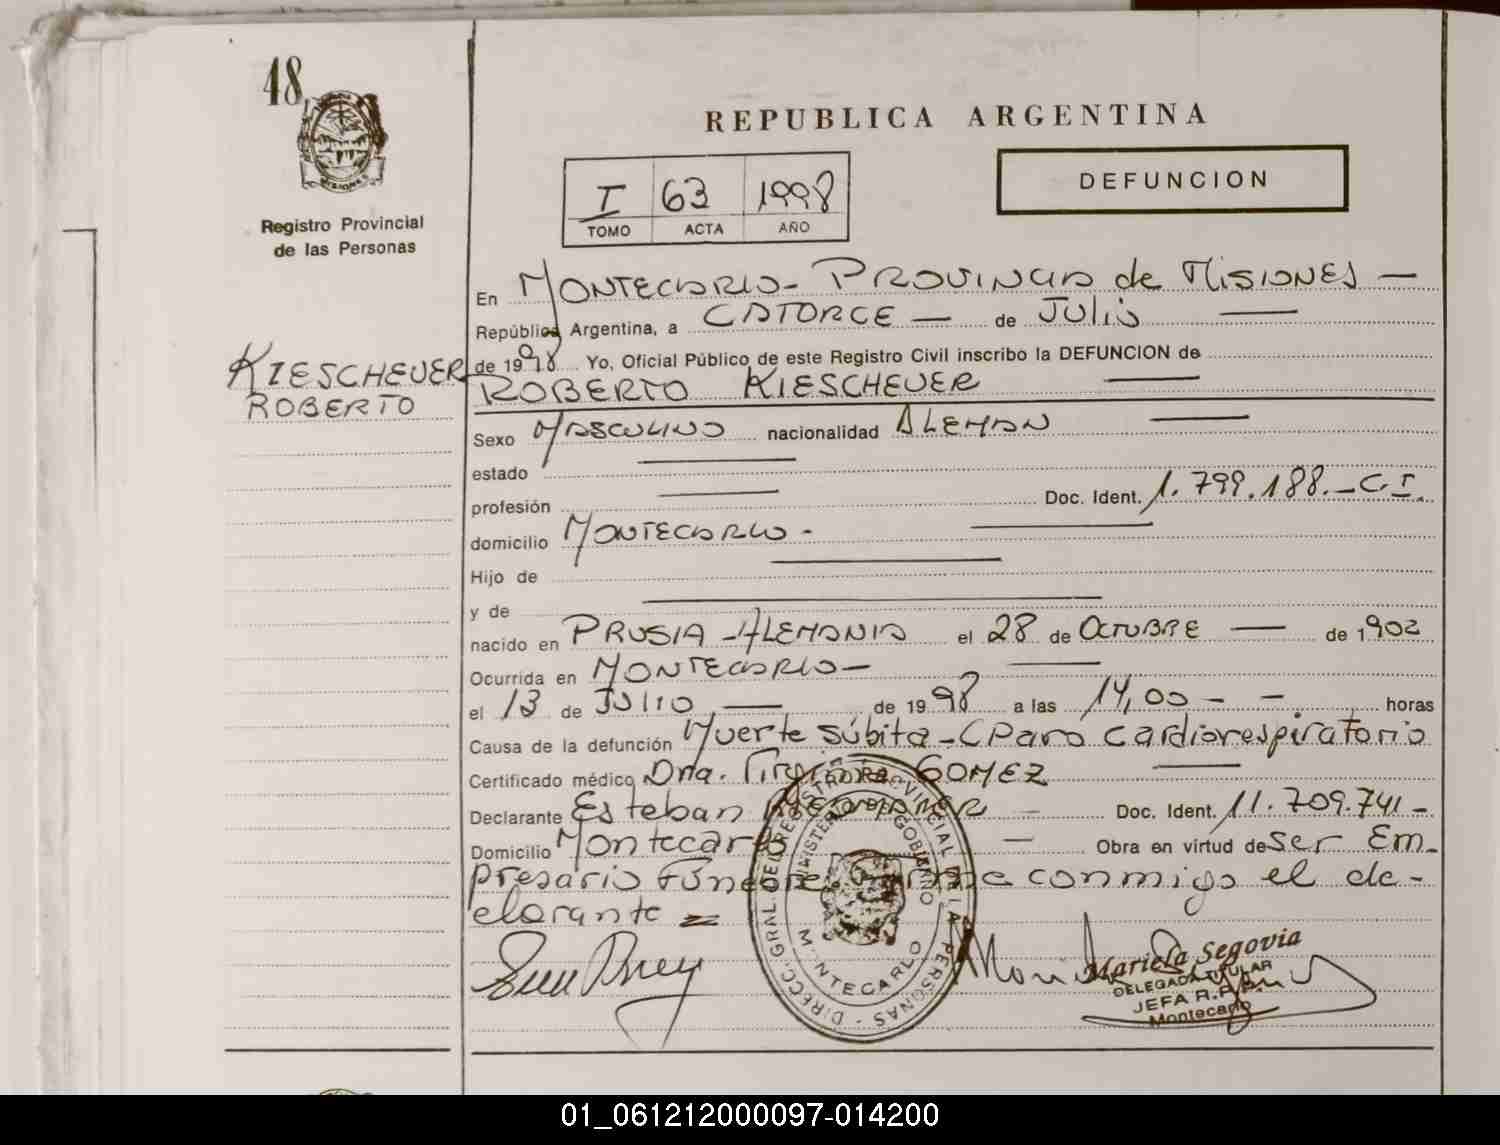 48
MISIONES
Registro Provincial
de las Personas
KIESCHEUER
ROBERTO
REPUBLICA ARGENTINA
I 63 1998
TOMO ACTA AÑO
DEFUNCION
En MONTECARLO - PROVINCIA de MISIONES —
República Argentina, a CATORCE — de JULIO —
de 1998 Yo, Oficial Público de este Registro Civil inscribo la DEFUNCION de
ROBERTO KIESCHEUER —
Sexo MASCULINO nacionalidad ALEMAN —
estado —
profesión — Doc. Ident. 1.799.188.-C.I.
domicilio MONTECARLO - —
Hijo de —
y de —
nacido en PRUSIA - ALEMANIA el 28 de OCTUBRE — de 1902
Ocurrida en MONTECARLO — —
el 13 de JULIO — de 1998 a las 14,00 - - horas
Causa de la defunción Muerte súbita - (Paro cardiorespiratorio
Certificado médico Dra. GOMEZ —
Declarante Esteban — Doc. Ident. 11.709.741 -
Domicilio Montecarlo — Obra en virtud de ser Em-
presario Fúnebre Firma conmigo el de-
clarante =
DIRECC. GRAL. DEL REGISTRO PROVINCIAL DE LAS PERSONAS -
MINISTERIO DE GOBIERNO
MONTECARLO
Mariela Segovia
DELEGADA TITULAR
JEFA R.P.P.
Montecarlo
01_061212000097-014200